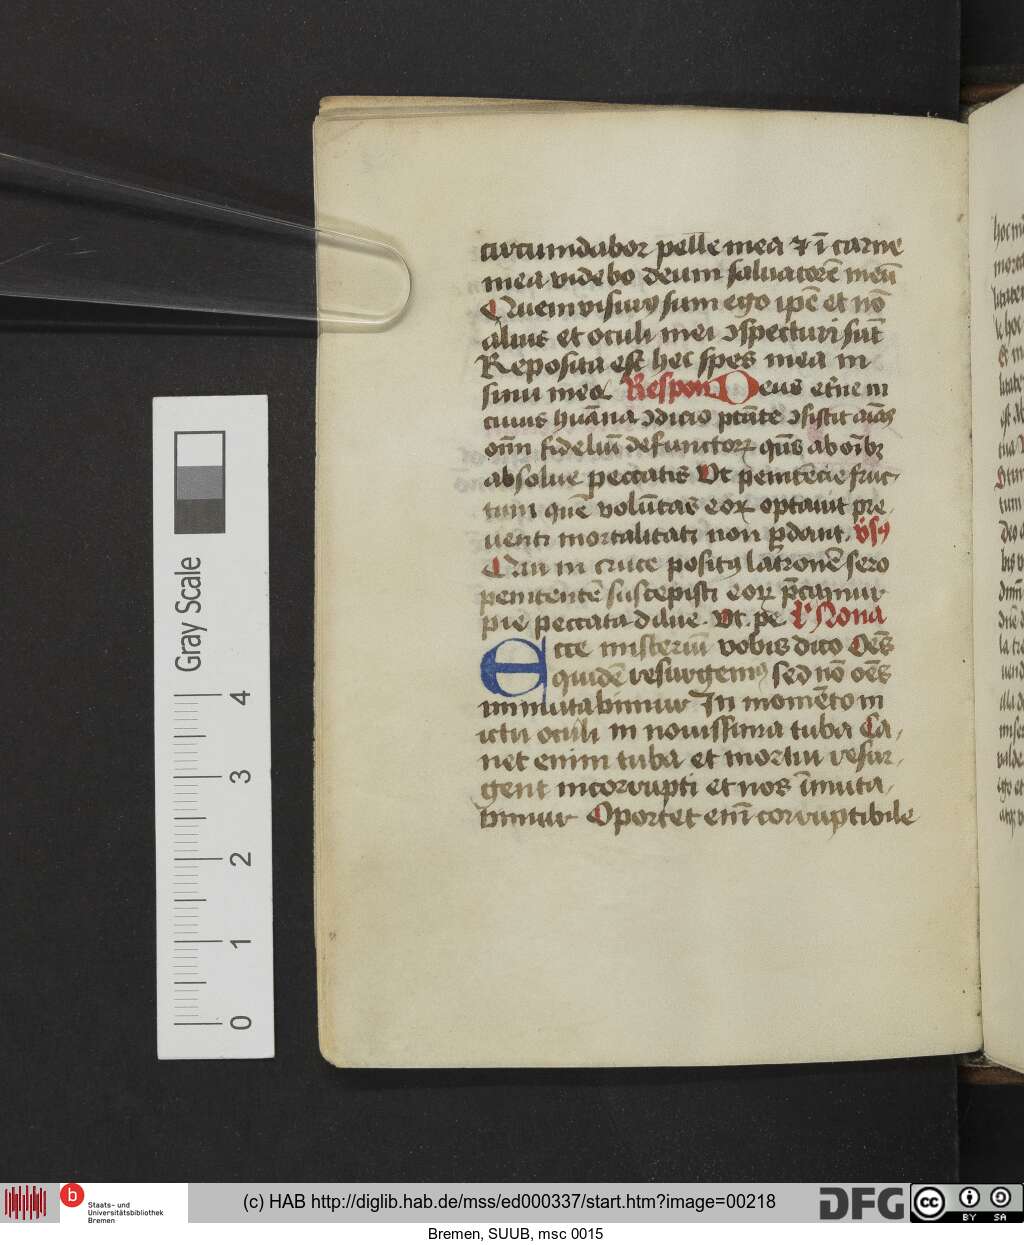 circumdabor pelle mea ⁊ ī carne
mea videbo deum saluatorē meū
Quem visurꝯ sum ego ipē et nō
alius et oculi mei ↄspecturi sūt
Reposita est hec spes mea in
sinu meo. Respon Deus et̄ne in
cuius huāna ↄdicio
oīm fideliū defunctorꝝ qūs ab oībꝫ
absolue peccatis Vt penitēcie fruc-
tum quē volūtas eorꝝ optauit pre
uenti mortalitati non ꝑdant. v̄sꝯ
Qui in cruce positꝯ latronē sero
penitentē suscepisti eorꝝ p̄camur
pie peccata dilue. vt. pe. l' Nona
Ecce misteriū vobis dico Oēs
quidē resurgemꝯ sed nō oēs
inmutabimur In momēto in
ictu oculi in nouissima tuba Ca,
net enim tuba et mortui resur,
gent incorrupti et nos īmuta,
bimur Oportet enī corruptibile
Gray Scale
4
3
2
1
0
b
Staats- und
Universitätsbibliothek
Bremen
(c) HAB http://diglib.hab.de/mss/ed000337/start.htm?image=00218
DFG
cc
BY SA
Bremen, SUUB, msc 0015